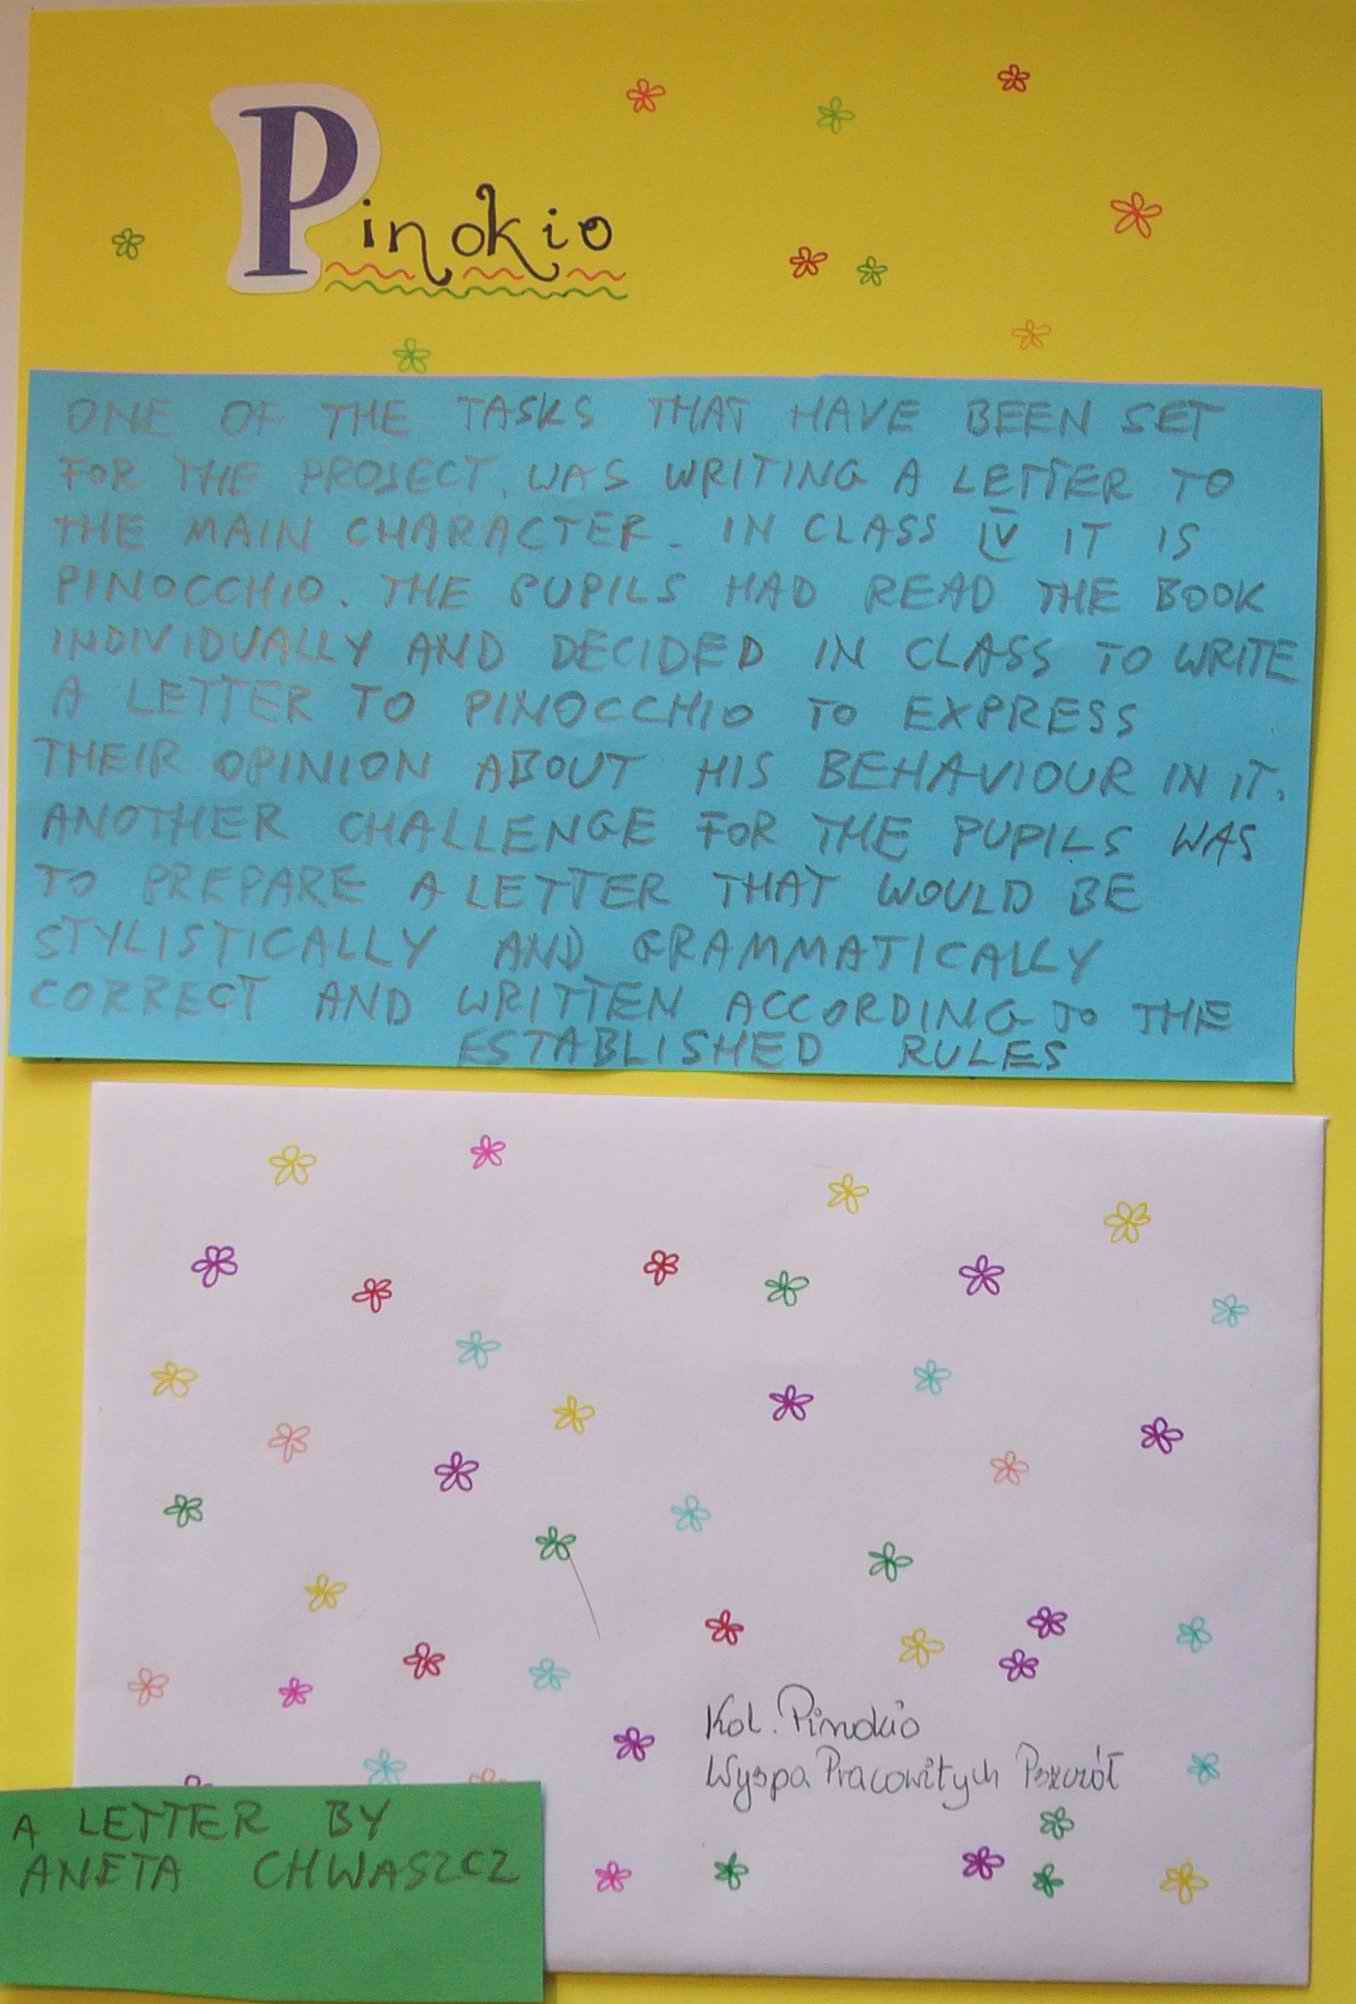 Pinokio
ONE OF THE TASKS THAT HAVE BEEN SET
FOR THE PROJECT, WAS WRITING A LETTER TO
THE MAIN CHARACTER. IN CLASS IV IT IS
PINOCCHIO. THE PUPILS HAD READ THE BOOK
INDIVIDUALLY AND DECIDED IN CLASS TO WRITE
A LETTER TO PINOCCHIO TO EXPRESS
THEIR OPINION ABOUT HIS BEHAVIOUR IN IT.
ANOTHER CHALLENGE FOR THE PUPILS WAS
TO PREPARE A LETTER THAT WOULD BE
STYLISTICALLY AND GRAMMATICALLY
CORRECT AND WRITTEN ACCORDING TO THE
ESTABLISHED RULES
Kol. Pinokio
Wyspa Pracowitych Pszczół
A LETTER BY
ANETA CHWASZCZ